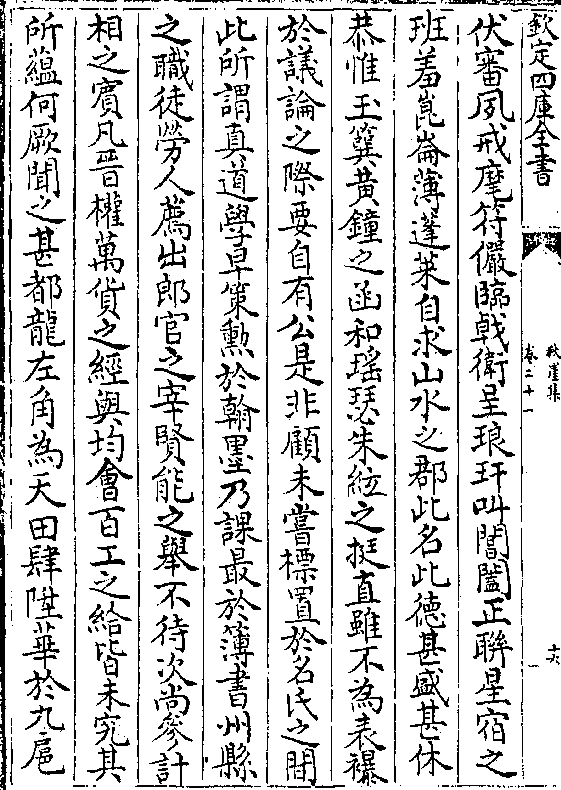 欽定四庫全書
秋崖集
卷二十一
十六
伏審夙戒麾符儼臨戟衛呈琅玕叫閶闔正聯星宿之
班羞崑崙薄蓬萊自求山水之郡此名此徳甚盛甚休
恭惟玉簨黄鐘之函和瑶瑟朱絃之挺直雖不為表襮
於議論之際要自有公是非顧未嘗標置於名氏之間
此所謂真道學早策勲於翰墨乃課最於簿書州縣
之職徒勞人薦出郎官之宰賢能之舉不待次尚參計
相之賓凡晋權萬貨之經與均會百工之給皆未究其
所藴何厥聞之甚都龍左角為天田肆陞華於九扈